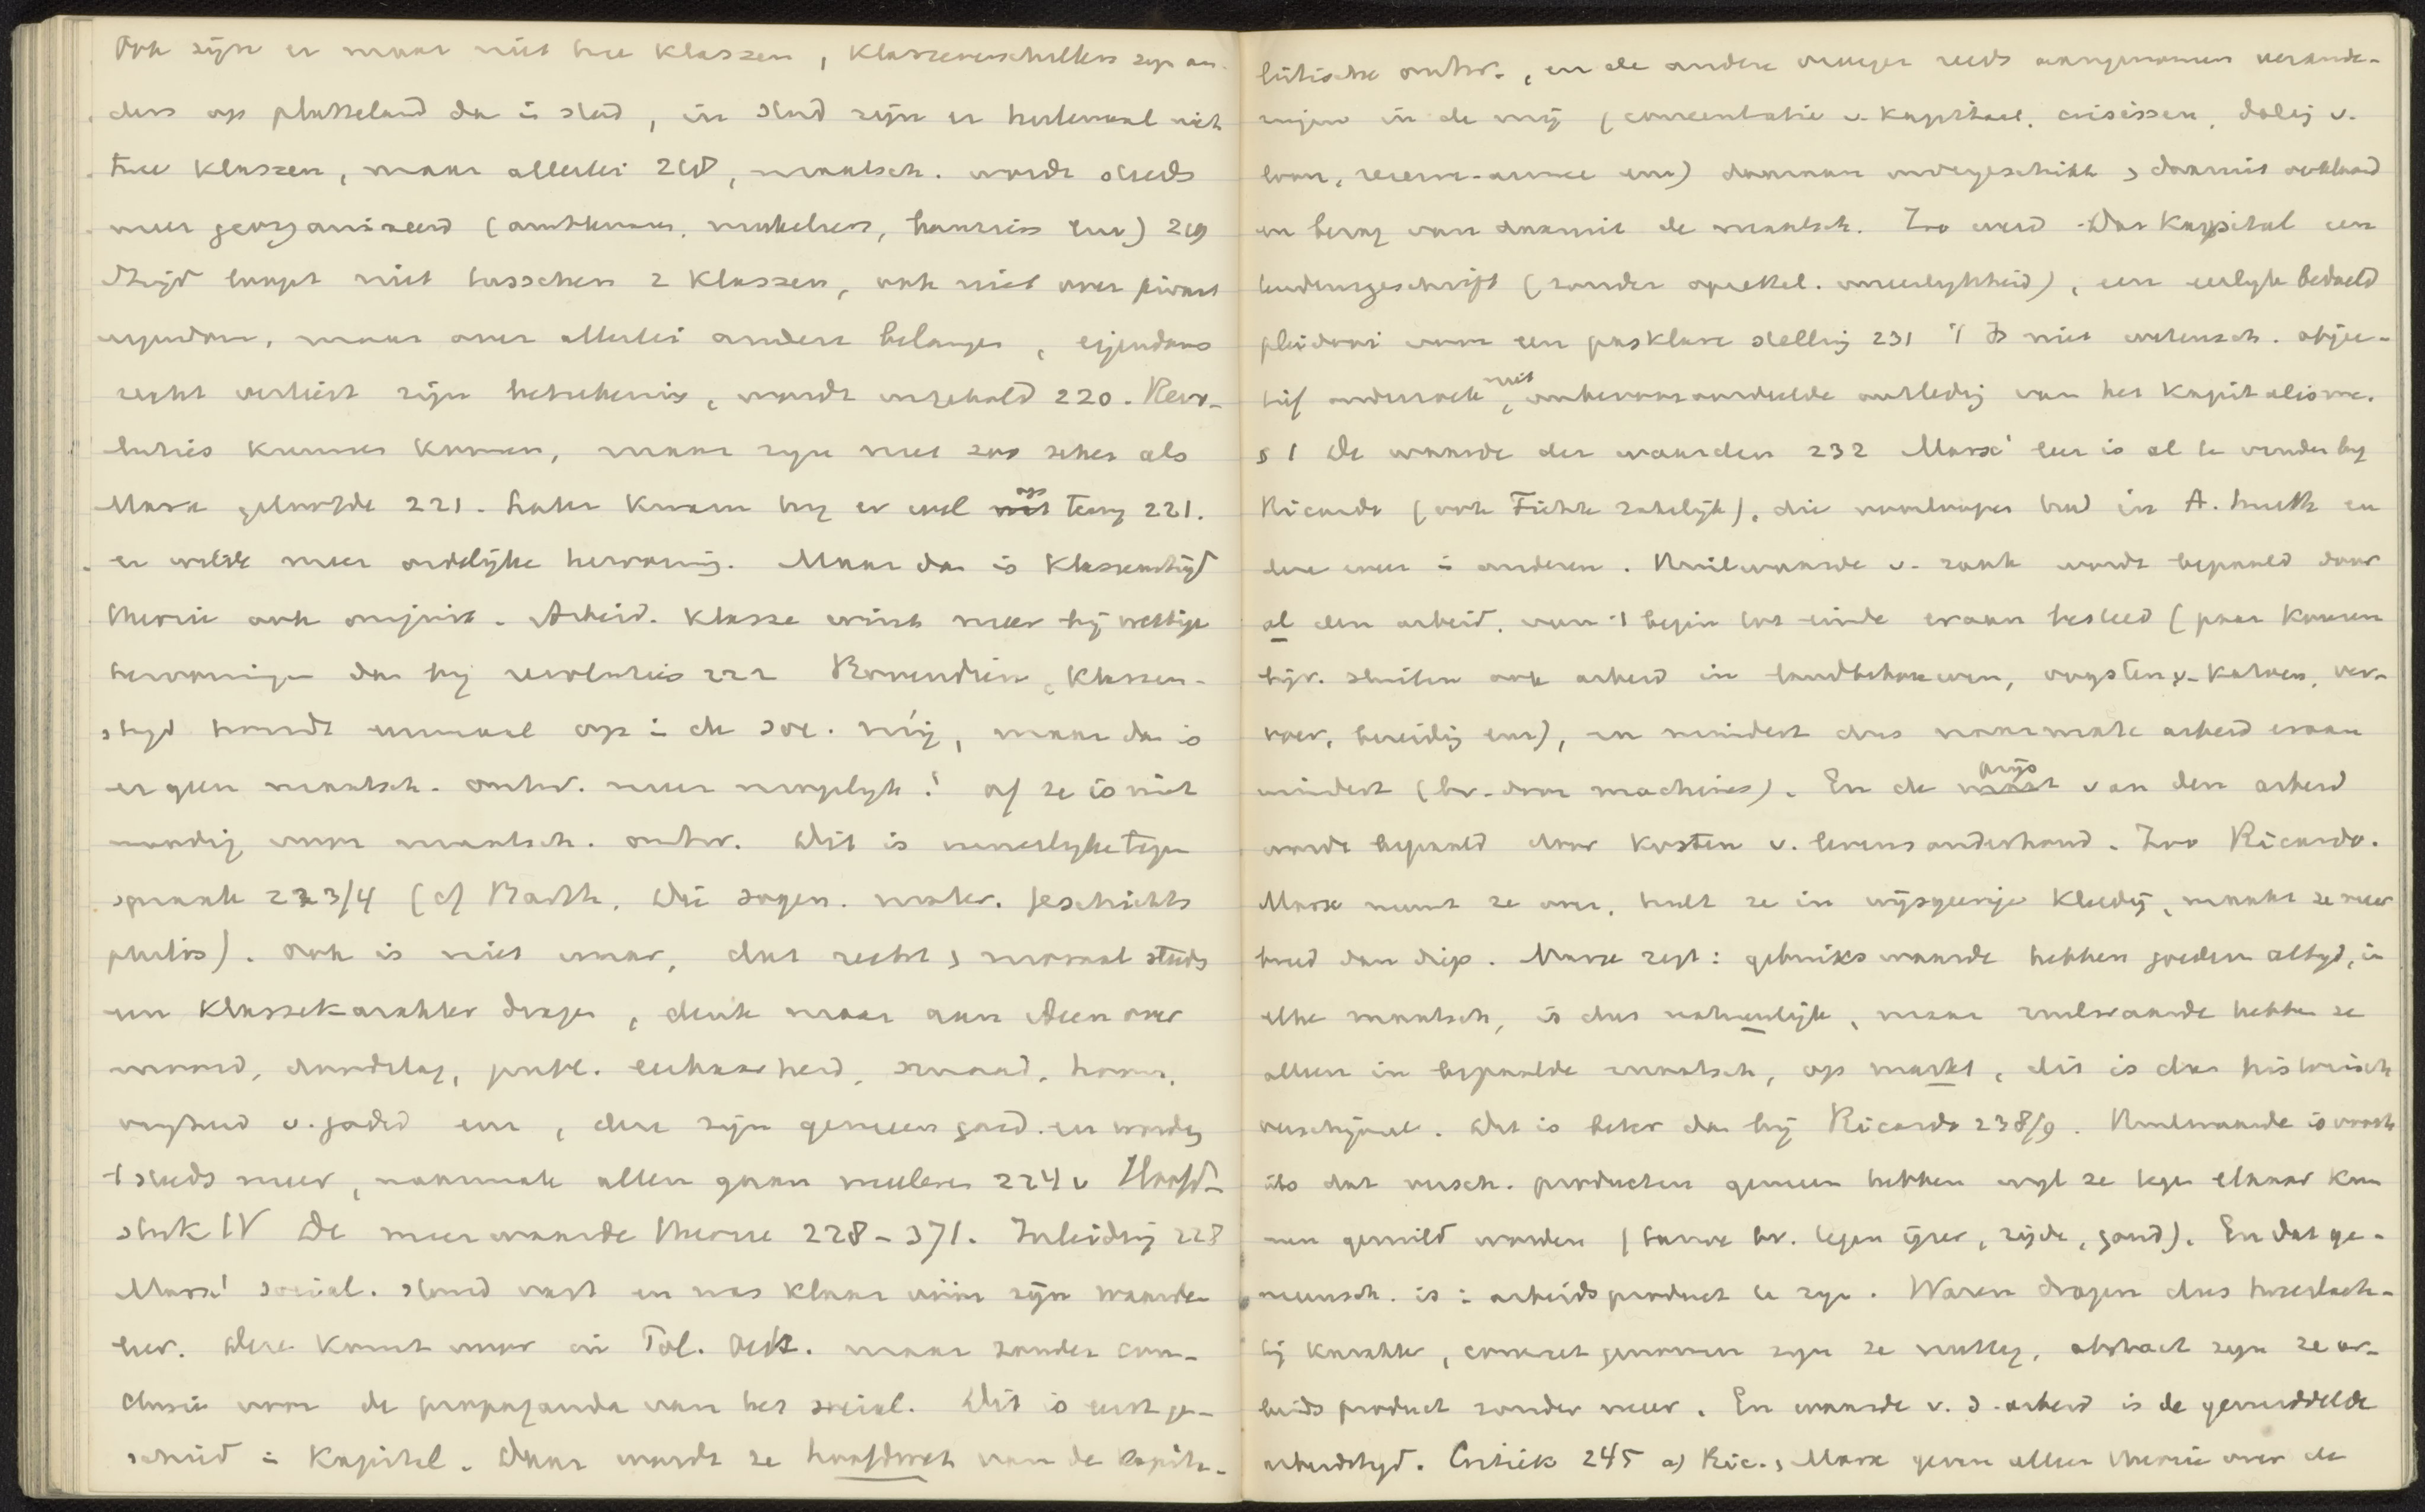 Ook zijn er maar niet twee klassen, klassenverschillen zijn an-
ders op platteland dan in stad, in stad zijn er heelemaal niet
twee klassen, maar allerlei 218, maatsch. wordt steeds
meer georganiseerd (ambtenaren, makelaars, bankiers enz) 219
Strijd loopt niet tusschen 2 klassen, ook niet over privaat
eigendom, maar over allerlei andere belangen, eigendoms
recht verliest zijn beteekenis, wordt uitgehold 220. Revo-
luties kunnen komen, maar zijn niet zoo zeker als
Marx geloofde 221. Later kwam hij er wel op terug 221.
en wilde meer ordelijke hervorming. Maar dan is klassenstrijd
theorie ook onjuist. Arbeid. klasse wint meer bij wettige
hervormingen dan bij revoluties 222 Bovendien, klassen-
strijd houdt eenmaal op in de soc. mij, maar dan is
er geen maatsch. ontw. meer mogelijk! of ze is niet
noodig voor maatsch. ontw. Dit is innerlijke tegen
spraak 223/4 (cf Barth, Die sogen. mater. Geschichts
philos). Ook is niet waar, dat recht & moraal steeds
een klassekarakter dragen, denk maar aan ideen over
moord, doodslag, publ. eerbaarheid, smaad, hoon,
vrijheid v. godsd enz, deze zijn gemeen goed en worden
t steeds meer, naarmate allen gaan meeleven 224v Hoofd-
stuk IV De meerwaarde theorie 228-371. Inleiding 228
Marx' social. stond vast en was klaar vóór zijn waarde
leer. Deze komt voor in Pol. Oek. maar zonder con-
clusie voor de propaganda van het social. Dit is eerst ge-
schied in Kapital. Daar wordt ze hoofdwet van de kapita-
listische ontw., en de andere vroeger reeds aangenomen verande-
ringen in de mij (concentratie v. kapitaal, crisissen, daling v.
loon, reserve-armee enz) daaraan ondergeschikt & daaruit verklaard
en betoog van daaruit de maatsch. Zoo werd Das Kapital een
tendenzgeschrift (zonder opzettel. oneerlijkheid), een eerlijk bedoeld
pleidooi voor een pasklare stelling 231 't Is niet wetensch. objec-
tief onderzoek, niet onbevooroordeelde ontleding van het kapitalisme.
§ 1 De waarde der waarden 232 Marx' leer is al te vinden bij
Ricardo (ook Fichte zakelijk), die voorlooper had in A. Smith en
deze weer in anderen. Ruilwaarde v. zaak wordt bepaald door
al den arbeid, van 't begin tot einde eraan besteed (paar kousen
bijv. sluiten ook arbeid in landbebouwen, oogsten v. katoen, ver-
voer, bereiding enz), en mindert dus naarmate arbeid eraan
mindert (bv. door machines). En de prijs van den arbeid
wordt bepaald door kosten v. levensonderhoud. Zoo Ricardo.
Marx neemt ze over, hult ze in wijsgeerige kleedij, maakt ze meer
breed dan diep. Marx zegt: gebruikswaarde hebben goederen altijd, in
elke maatsch, is dus natuurlijk, maar ruilwaarde hebben ze
alleen in bepaalde maatsch, op markt, dit is dus historisch
verschijnsel. Dit is beter dan bij Ricardo 238/9. Ruilwaarde is voorts
iets dat versch. producten gemeen hebben wijl ze tegen elkaar kun
nen geruild worden (tarwe bv. tegen ijzer, zijde, goud). En dat ge-
meensch. is: arbeidsproduct te zijn. Waren dragen dus tweeslach-
tig karakter, concreet genomen zijn ze nuttig, abstract zijn ze ar-
beidsproduct zonder meer. En waarde v. d. arbeid is de gemiddelde
arbeidstijd. Critiek 245 a) Ric. & Marx geven alleen theorie over de